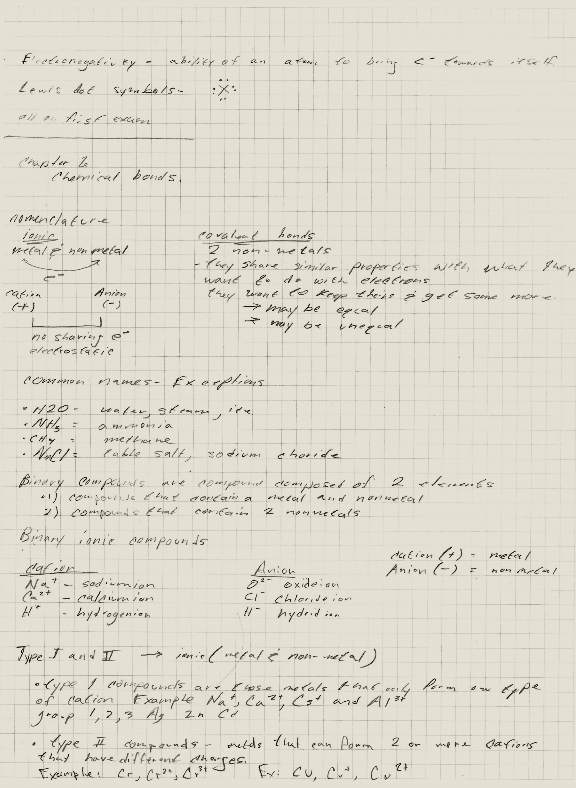 Electronegativity - ability of an atom to bring e⁻ towards itself.
Lewis dot symbols- :Ẍ:
all on first exam
Chapter 2
Chemical bonds.
nomenclature
ionic
metal & non metal
e⁻
cation Anion
(+) (-)
no sharing e⁻
electrostatic
covalent bonds
2 non-metals
- they share similar properties with what they
want to do with electrons
they want to keep theirs & get some more.
→ may be equal
→ may be unequal
common names- Exceptions
• H2O = water, steam, ice
• NH₃ = ammonia
• CH₄ = methane
• NaCl = table salt, sodium choride
Binary compounds are compound composed of 2 elements
1) compounds that contain a metal and nonmetal
2) compounds that contain 2 nonmetals
Binary ionic compounds
cation (+) = metal
Anion (-) = non metal
Cation Anion
Na⁺ - sodiumion O²⁻ oxideion
Ca²⁺ - calciumion Cl⁻ chlorideion
H⁺ - hydrogenion H⁻ hydrid ion
Type I and II → ionic (metal & non-metal)
• type 1 compounds are those metals that only form one type
of cation Example Na⁺, Ca²⁺, Cs⁺ and Al³⁺
group 1,2,3 Ag Zn Cd
• type II compounds - metals that can form 2 or more cations
that have different charges.
Example: Cr, Cr²⁺, Cr³⁺ Ex: Cu, Cu⁺, Cu²⁺